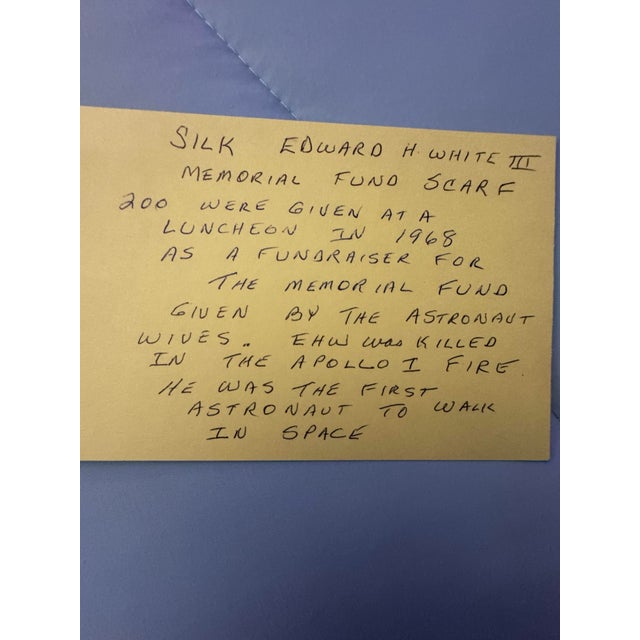 SILK EDWARD H. WHITE III
MEMORIAL FUND SCARF
200 WERE GIVEN AT A
LUNCHEON IN 1968
AS A FUNDRAISER FOR
THE MEMORIAL FUND
GIVEN BY THE ASTRONAUT
WIVES. EHW was KILLED
IN THE APOLLO I FIRE.
HE WAS THE FIRST
ASTRONAUT TO WALK
IN SPACE